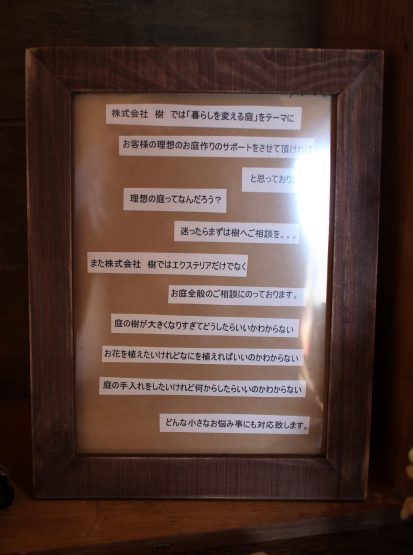 株式会社　樹　では「暮らしを変える庭」をテーマに
お客様の理想のお庭作りのサポートをさせて頂け
と思ってお
理想の庭ってなんだろう？
迷ったらまずは樹へご相談を。。。
また株式会社　樹ではエクステリアだけでなく
お庭全般のご相談にのっております。
庭の樹が大きくなりすぎてどうしたらいいかわからない
お花を植えたいけれどなにを植えればいいのかわからない
庭の手入れをしたいけれど何からしたらいいのかわからない
どんな小さなお悩み事にも対応致します。